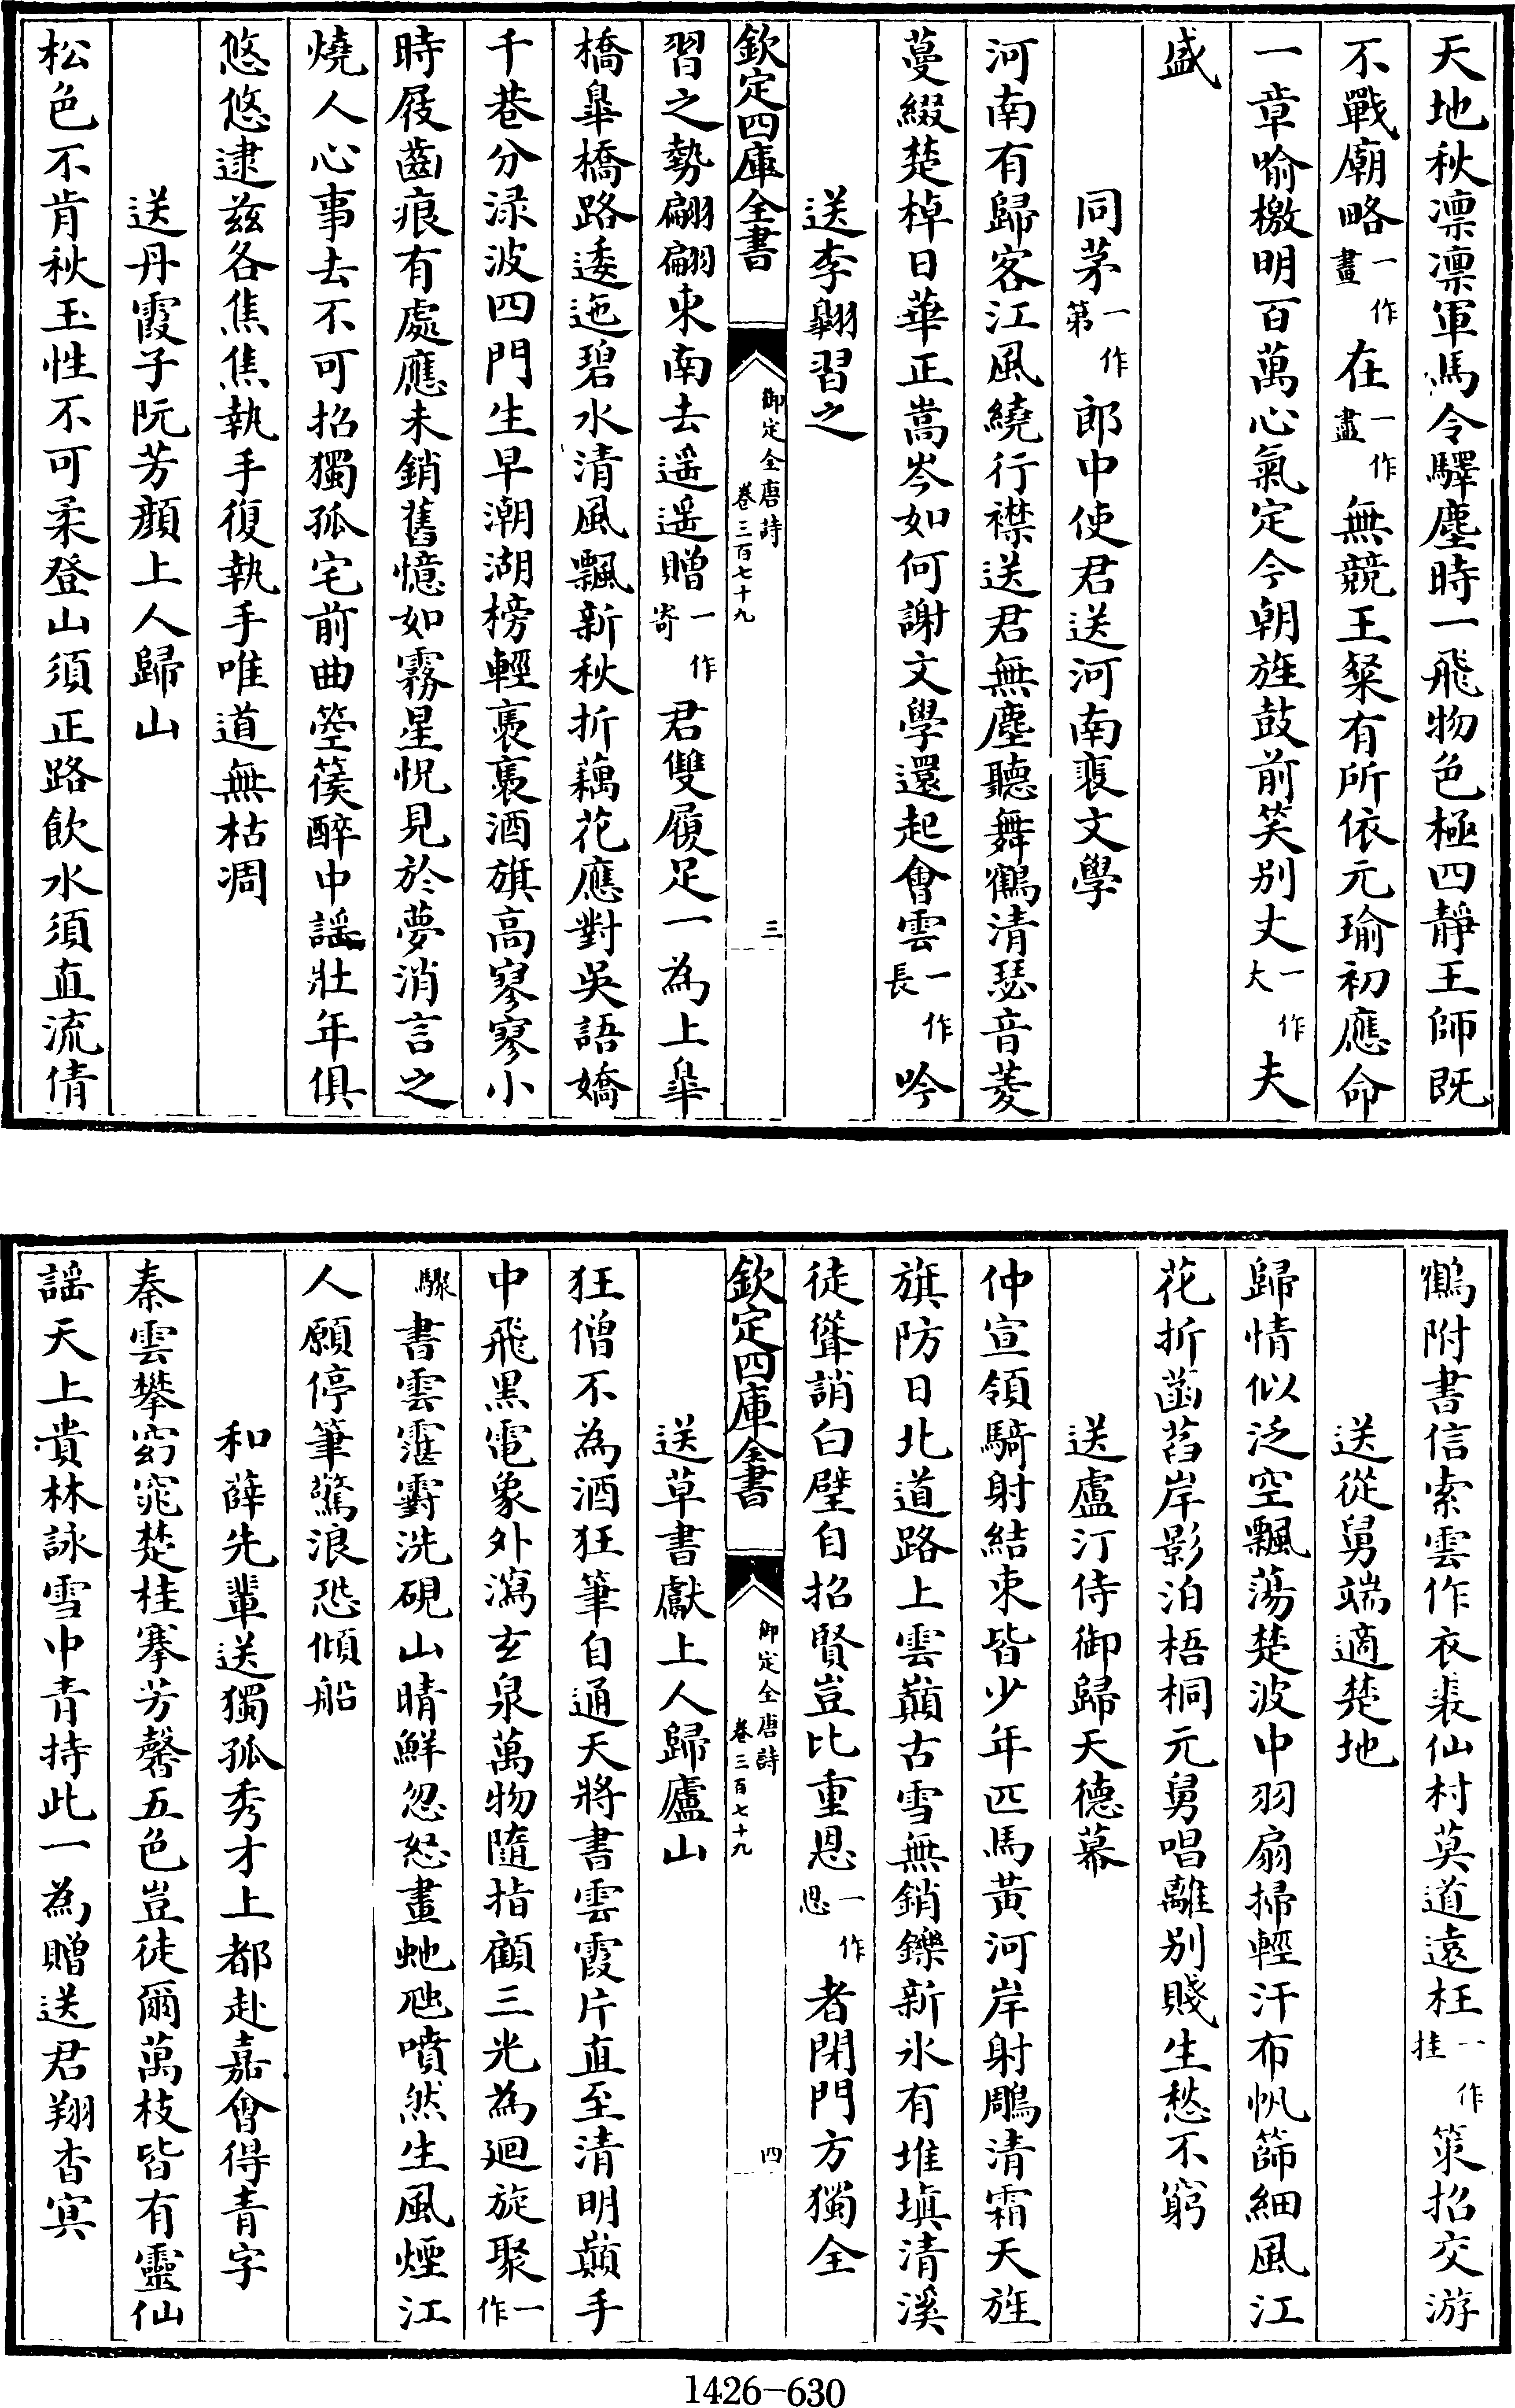 天地秋凛凛軍馬令驛塵時一飛物色極四靜王師既
不戰廟略一作畫在一作盡無競王粲有所依元瑜初應命
一章喻檄明百萬心氣定今朝旌鼓前笑别丈一作大夫
盛
同茅一作第郎中使君送河南裴文學
河南有歸客江風繞行襟送君無塵聽舞鶴清瑟音菱
蔓綴楚棹日華正嵩岑如何謝文學還起會雲一作長吟
送李翺習之
欽定四庫全書
御定全唐詩
卷三百七十九
三
習之勢翩翩東南去遥遥贈一作寄君雙履足一為上臯
橋臯橋路逶迤碧水清風飄新秋折藕花應對吳語嬌
千巷分渌波四門生早潮湖榜輕裊裊酒旗高寥寥小
時屐齒痕有處應未銷舊憶如霧星怳見於夢消言之
燒人心事去不可招獨孤宅前曲箜篌醉中謡壯年俱
悠悠逮兹各焦焦執手復執手唯道無枯凋
送丹霞子阮芳顔上人歸山
松色不肯秋玉性不可柔登山須正路飲水須直流倩
鶴附書信索雲作衣裘仙村莫道遠枉一作挂策招交游
送從舅端適楚地
歸情似泛空飄蕩楚波中羽扇掃輕汗布帆篩細風江
花折菡萏岸影泊梧桐元舅唱離别賤生愁不窮
送盧汀侍御歸天德幕
仲宣領騎射結束皆少年匹馬黄河岸射鵰清霜天旌
旗防日北道路上雲巔古雪無銷鑠新氷有堆填清溪
徒聳誚白璧自招賢豈比重恩一作思者閉門方獨全
欽定四庫全書
御定全唐詩
卷三百七十九
四
送草書獻上人歸廬山
狂僧不為酒狂筆自通天將書雲霞片直至清明巔手
中飛黑電象外瀉玄泉萬物隨指顧三光為廻旋聚一作
驟書雲霮䨴洗硯山晴鮮忽怒畫虵虺噴然生風煙江
人願停筆驚浪恐傾船
和薛先輩送獨孤秀才上都赴嘉會得青字
秦雲攀窈窕楚桂搴芳馨五色豈徒爾萬枝皆有靈仙
謡天上貴林詠雪中青持此一為贈送君翔杳冥
1426-630